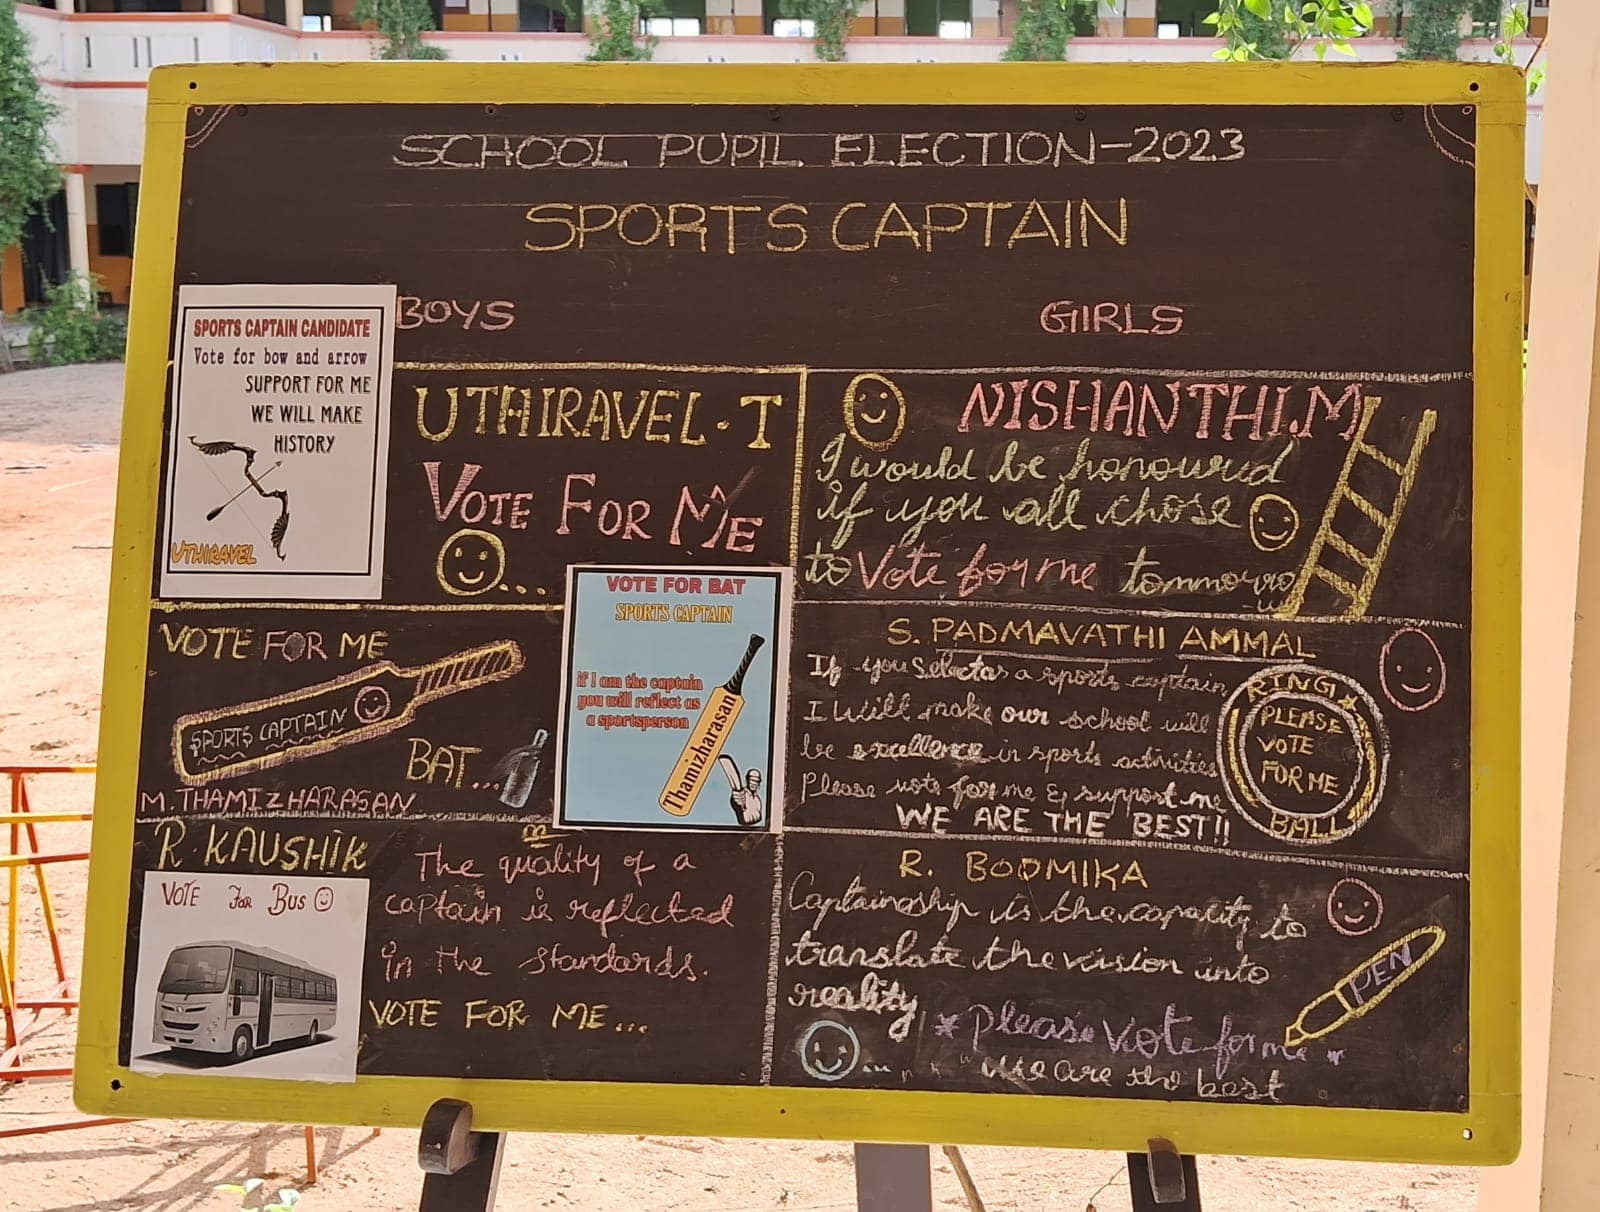 SCHOOL PUPIL ELECTION-2023
SPORTS CAPTAIN
BOYS
GIRLS
SPORTS CAPTAIN CANDIDATE
Vote for bow and arrow
SUPPORT FOR ME
WE WILL MAKE
HISTORY
UTHIRAVEL
UTHIRAVEL.T
VOTE FOR ME
...
VOTE FOR ME
SPORTS CAPTAIN
BAT...
M.THAMIZHARASAN
VOTE FOR BAT
SPORTS CAPTAIN
if I am the captain
you will reflect as
a sportsperson
Thamizharasan
R.KAUSHIK
VOTE FOR BUS
The quality of a
captain is reflected
in the standards.
VOTE FOR ME...
NISHANTHI.M
I would be honoured
if you all chose
to Vote for me tommorro
w
S. PADMAVATHI AMMAL
If you select as a sports captain
I will make our school will
be excellence in sports activities
Please vote for me & support me
WE ARE THE BEST!!
RING
PLEASE
VOTE
FOR ME
BALL
R. BOOMIKA
Captainship is the capacity to
translate the vision into
reality
PEN
* Please Vote for me *
... we are the best